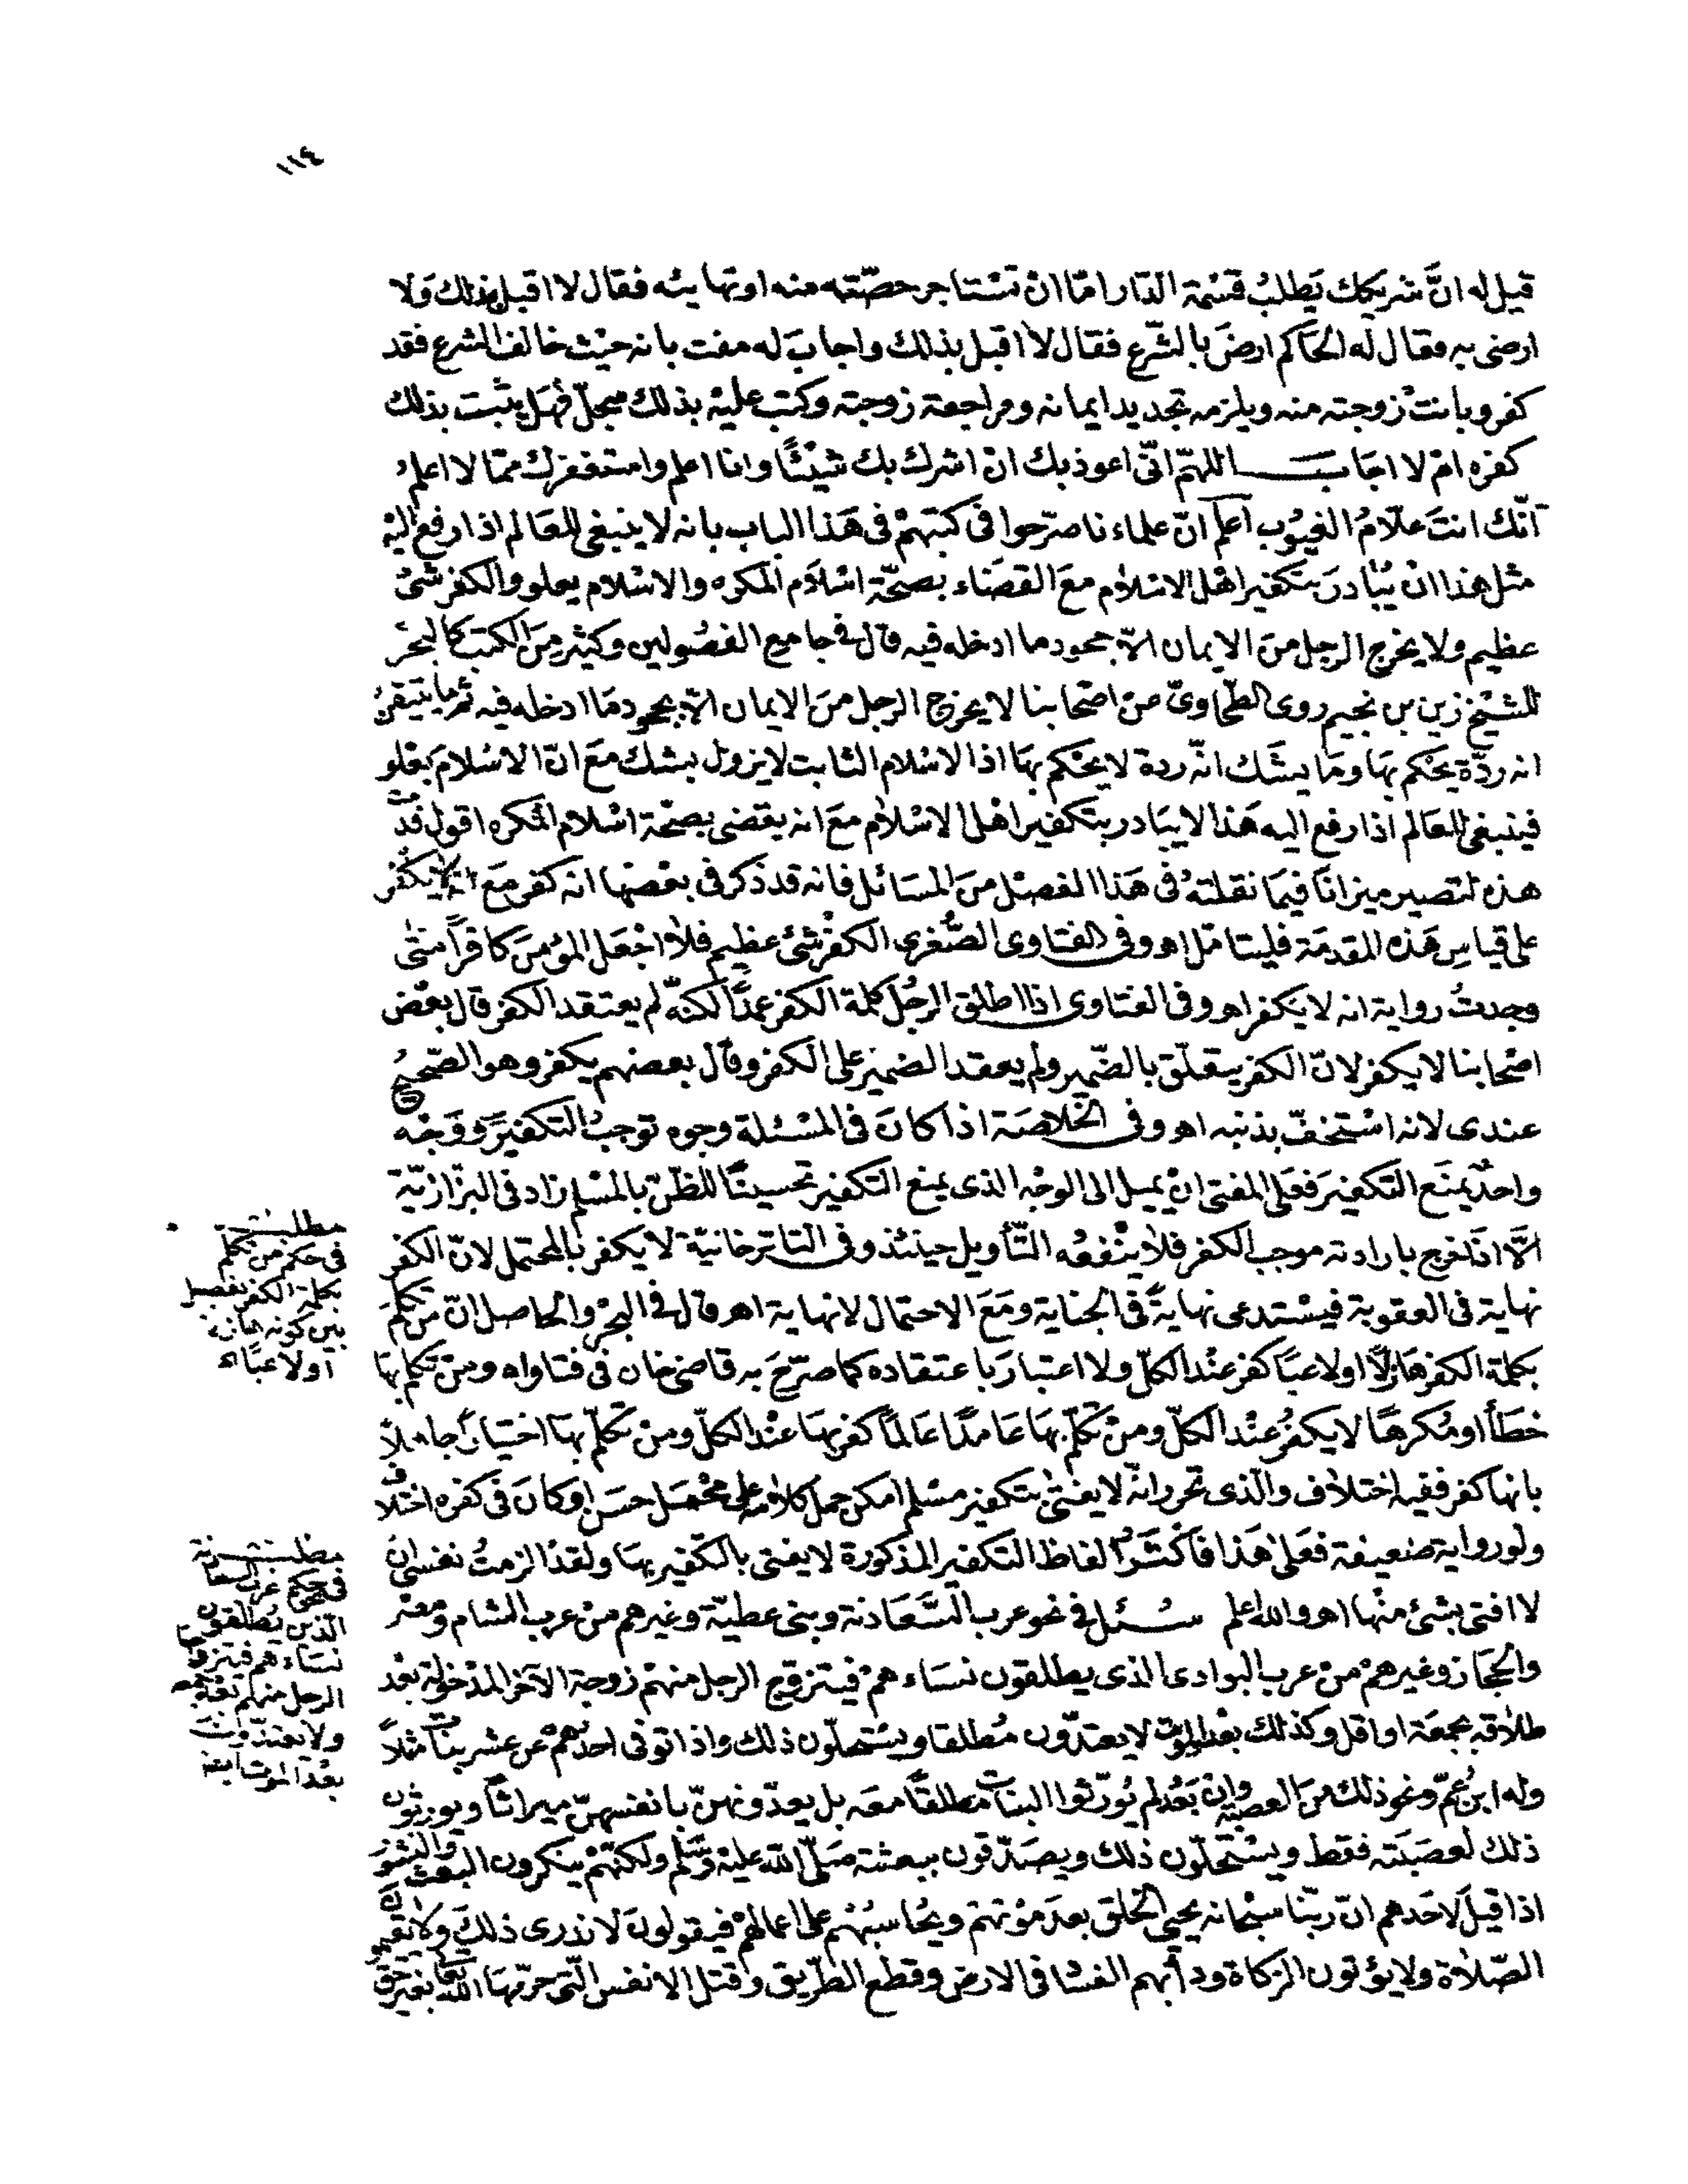 ١١٤
قيل له انَّ شريكك يَطلبُ قسْمة الدّار امّا انْ تسْتاجر حصّته منه او تهايئه فقال لا اقبل بذلك وَلا
ارضى به فقال له الحَاكم ارضَ بالشّرع فقال لا اقبل بذلك واجابَ له مفت بانه حيْث خالف الشرع فقد
كفر وبانتْ زوجته منه ويلزمه تجديد ايمانه ومراجعة زوجته وكتب عليْه بذلك سجلّ فهَل يثبت بذلك
كفره امْ لا اجَابَ اللهمّ انّى اعوذ بك ان اشرك بك شيْئًا وانا اعلم واستغفرك ممّا لا اعلمُ
انّك انتَ علّامُ الغيُوب اعلم انّ علماءنا صرّحوا فى كتبهمْ فى هَذا الباب بانه لا ينبغى للعَالم اذا رفع اليْه
مثل هَذا انْ يُبَادرَ بتكفير اهْل الاسْلام معَ القضَاء بصحّة اسْلام المكره والاسْلام يعلو والكفر شئ
عظيم ولا يخرج الرجل منَ الايمان الّا جحود ما ادخله فيه قال فى جامع الفصُولين وكثير منَ الكتب كالبحْر
للشيْخ زين بن نجيم روى الطّحاوىّ منْ اصْحابنا لا يخرج الرجل منَ الايمان الّا بجحود مَا ادخله فيه ثم ما يتيقنُ
انه ردّة يحْكم بهَا ومَا يشَك انّه ردة لا يحْكم بهَا اذ الاسْلام الثابت لا يزول بشك معَ انّ الاسْلامَ يعْلو
فينبغى للعَالم اذا رفع اليه هَذا لا يبَادر بتكفير اهْل الاسْلام معَ انه يقضى بصحّة اسْلام المُكره اقول قدّمت
هذه لتصير ميزانًا فيمَا نقلتهُ فى هَذا الفصْل منَ المسَائل فانه قد ذكر فى بعْضها انه كفر مَع انّه لا يكفر
على قياسِ هَذه المقدمَة فليتامّل اهـ وفى الفتاوى الصُّغرى الكفرُ شئ عظيم فلا اجْعَل المؤمنَ كافرًا متى
وجدتُ رواية انه لا يكفر اهـ وفى الفتاوى اذا اطلق الرجُل كلمة الكفر عمدًا لكنّه لم يعتقد الكفر قال بعْض
اصْحابنا لا يكفر لانّ الكفر يتعلّق بالضّمير ولم يعقد الضمير على الكفر وقال بعضهم يكفر وهو الصّحيحُ
عندى لانه اسْتخفّ بذنبه اهـ وفى الخلاصَة اذا كانَ فى المسْئلة وجوه توجبُ التكفيرَ ووَجْه
واحدٌ يمنَع التكفيرَ فعَلى المفتى انْ يميل الى الوجْه الذى يمنع التكفير تحسينًا للظنّ بالمسْلم زاد فى البزّازيّة
الَّا اذا صَرح بارادته موجب الكفر فلا ينْفعُه التّأويل حينئذ وفى التاترخانيّة لا يكفر بالمحتمل لانّ الكفر
نهاية فى العقوبة فيسْتدعى نهايةً فى الجناية ومَعَ الاحتمال لا نهاية اهـ قال فى البحْر والحاصل انّ منْ تكلّمَ
بكلمة الكفر هَازلًا او لاعبًا كفر عنْد الكلّ ولا اعتبارَ باعتقاده كما صرّحَ به قاضى خان فى فتاواه ومنْ تكلّم بهَا
خطَأً او مُكرهًا لا يكفرُ عنْد الكلّ ومنْ تكلّم بهَا عَامدًا عَالمًا كفر بهَا عنْد الكلّ ومنْ تكلّم بهَا اختيارًا جاهلًا
بانها كفر ففيه اختلاف والّذى تحرر انّه لا يفتى بتكفير مسْلم امكن حمل كلامه على محْمَل حسَن او كانَ فى كفره اختلاف
ولو رواية ضعيفة فعَلى هَذا فاكْثرُ الفاظ التكفير المذكورة لا يفتى بالتكفير بهَا ولقدْ الزمتُ نفسى انْ
لا افتى بشئ منْها اهـ والله اعلم سُئل فى نحو عرب السَّعَادنة وبنى عطيّة وغيرهم منْ عرب الشام ومصْر
والحجَاز وغيرهمْ منْ عرب البوادى الذى يطلقون نسَاءهمْ فيتزوج الرجل منهمْ زوجة الآخر المدْخولة بعْد
طلاقه بجمعَة او اقل وكذلك بعْد الموْت لا يعتدّون مُطلقا ويسْتحلّون ذلك واذا توفى احدهمْ عن عشر بنات مثلًا
وله ابنُ عمّ ونحو ذلك منَ العصبَة وانْ بَعُد لم يُورّثوا البنات مطلقًا معَه بل يعدّونهنّ بانفسهنّ ميراثًا ويورثون
ذلك لعصَبَته فقط ويسْتحلّون ذلك ويصَدّقون ببعثته صَلّى اللّه عليْه وسَلّم ولكنّهمْ ينكرون البعْث والنشور
اذا قيلَ لاحَدهم انّ ربّنا سبْحانه يحيى الخلق بعدَ موْتهمْ ويُحاسبُهمْ على اعمالهمْ فيقولونَ لا ندرى ذلكَ ولا يقيمون
الصّلاة ولا يؤتون الزكاة ودأبهم الفسَاد فى الارض وقطع الطّريق وقتل الانفس الّتى حرّمهَا اللّه تعالى بغير حق
مطلبـــــ
فى حكم من تكلم
بكلمة الكفر تفصيل
بين كونه هازلا
او لاعبًا
مطلبـــــ
فى حكم عرب السعادنة
الّذين يُطلقون
نسَاءهم فيتزوج
الرجل منهم بعْد جمعة
ولا تعتدّ وان
بعْد الموت ايضا